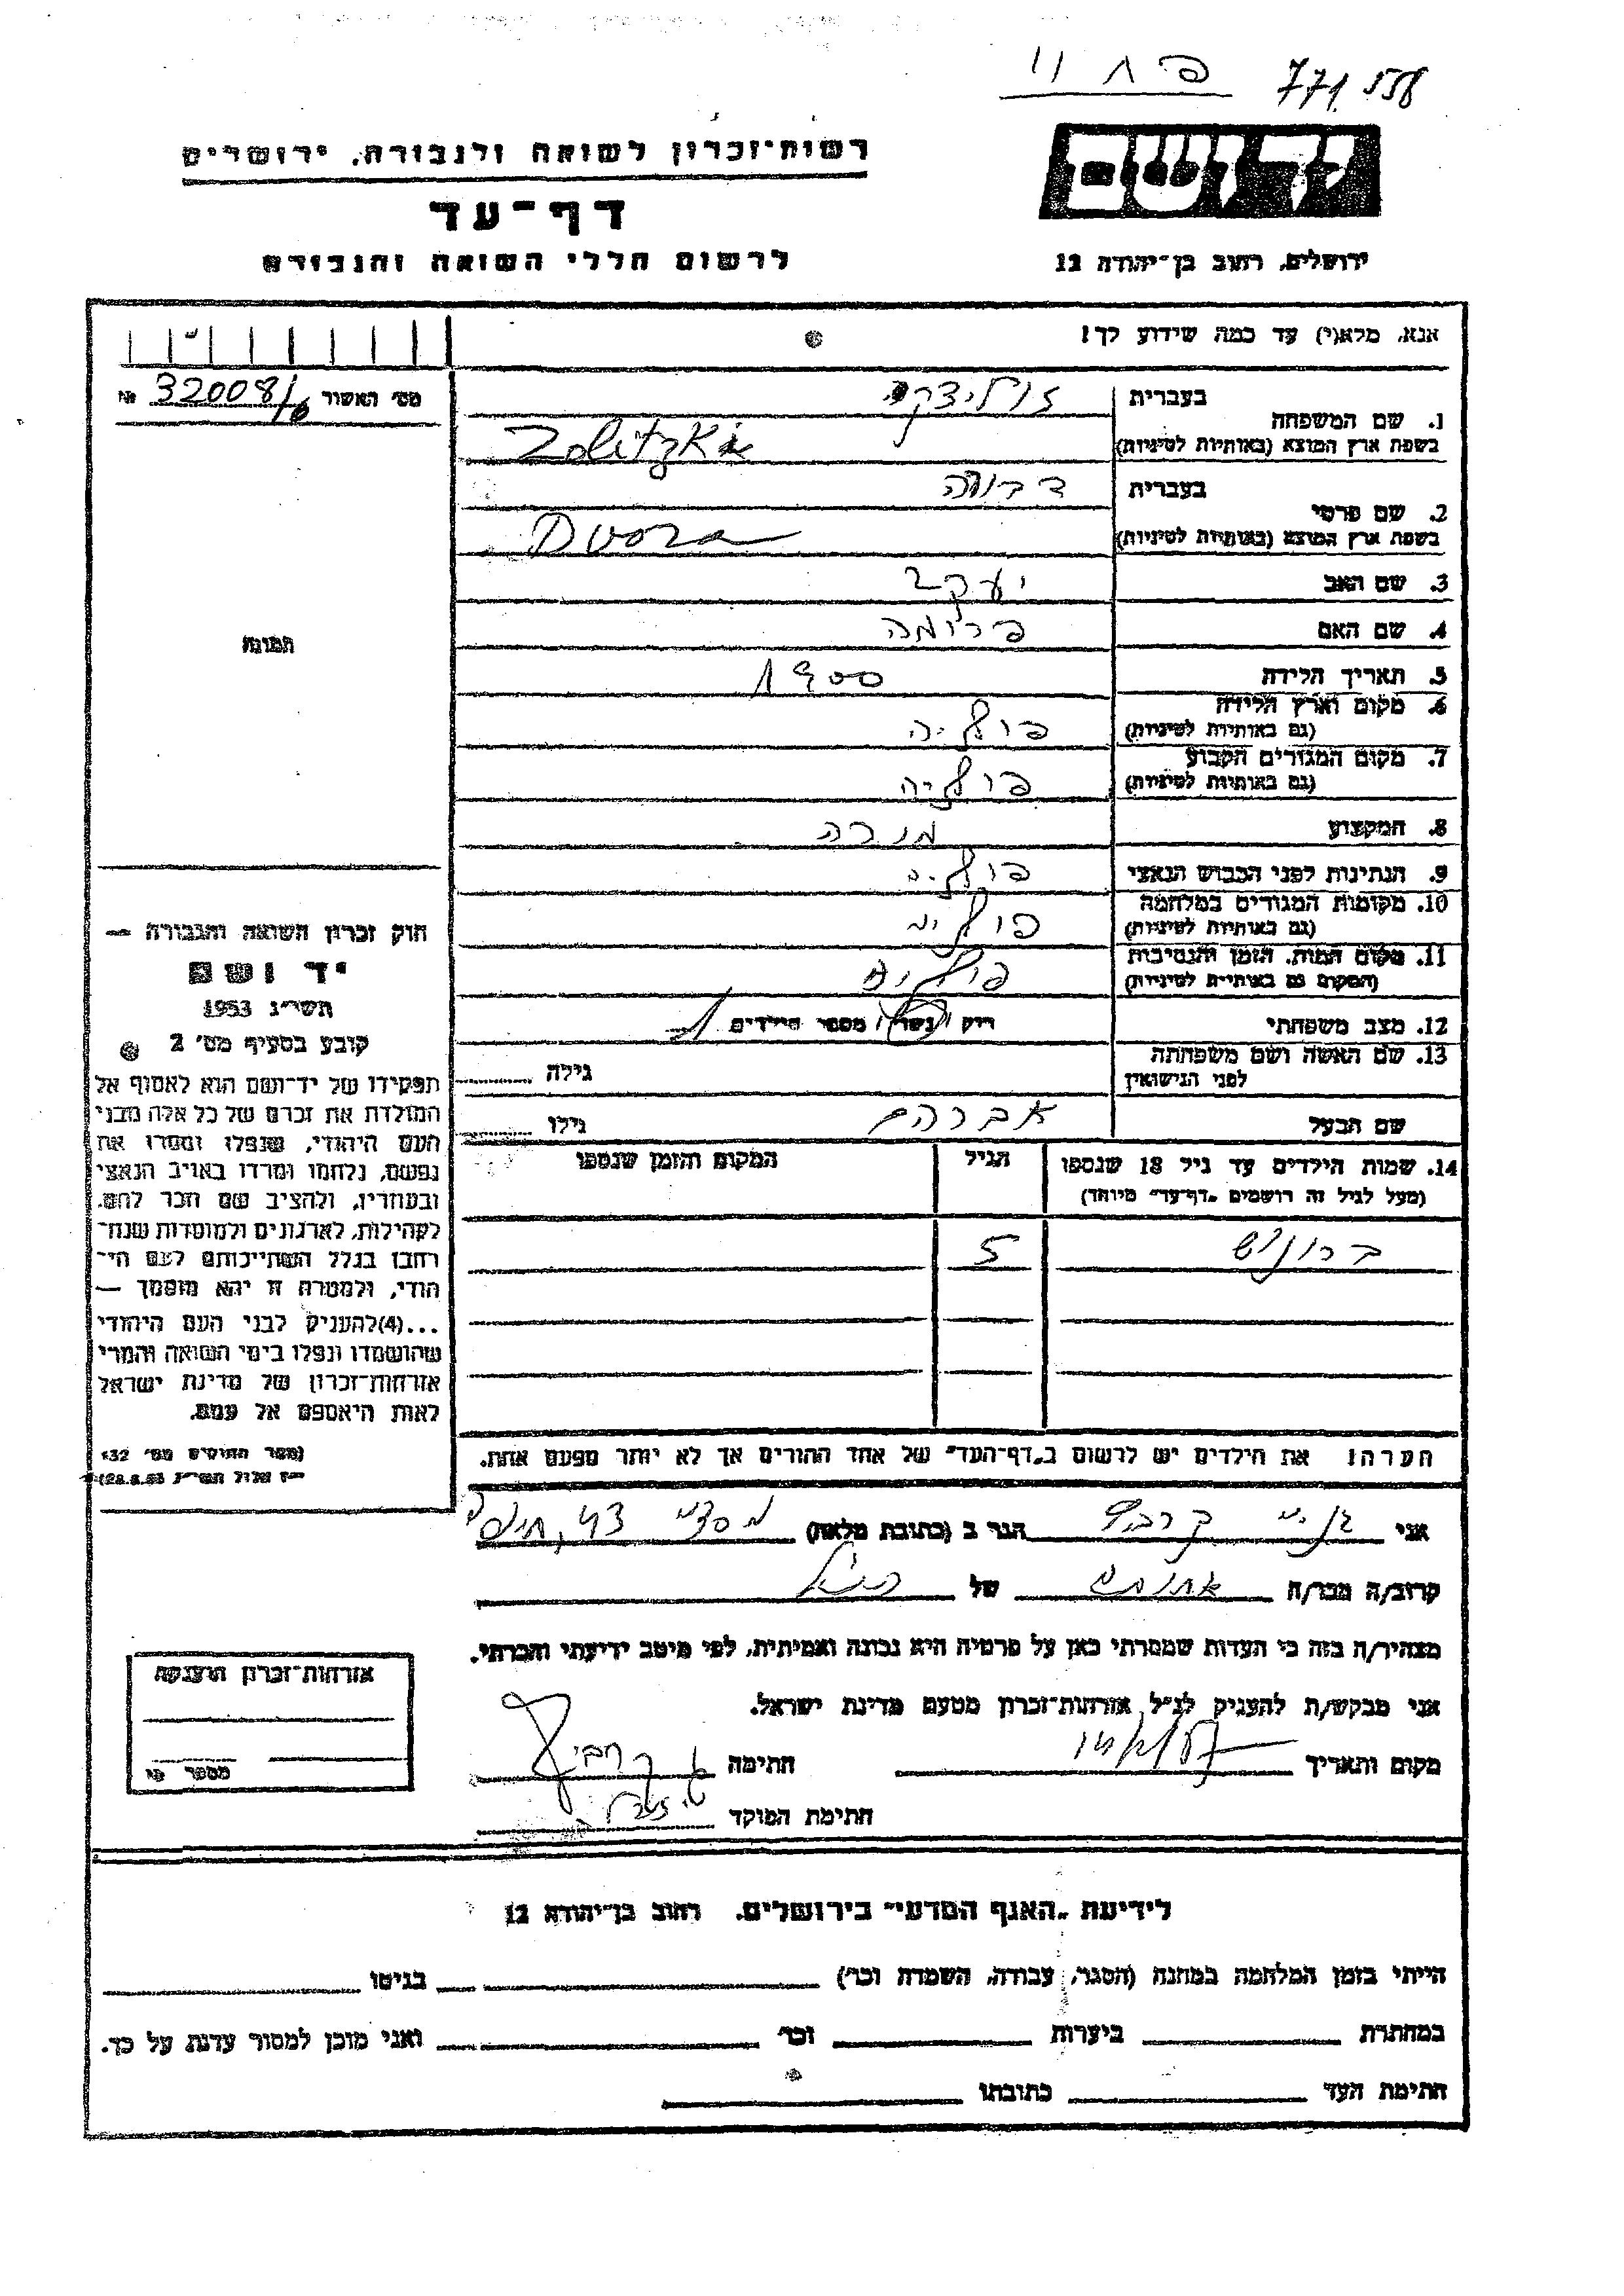 771.558
רשות-זכרון לשואה ולגבורה, ירושלים
יד ושם
דף-עד
לרשום חללי השואה והגבורה
ירושלים, רחוב בן-יהודה 12
אנא, מלא(י) עד כמה שידוע לך!
מס׳ האשור № 32008/
1. שם המשפחה
בעברית
בשפת ארץ המוצא (באותיות לטיניות) Zolitzki
2. שם פרטי
בעברית דבורה
בשפת ארץ המוצא (באותיות לטיניות) Dvora
3. שם האב יעקב
4. שם האם פרומה
5. תאריך הלידה 1900
6. מקום וארץ הלידה
(גם באותיות לטיניות)
7. מקום המגורים הקבוע
(גם באותיות לטיניות)
8. המקצוע
9. הנתינות לפני הכבוש הנאצי
10. מקומות המגורים במלחמה
(גם באותיות לטיניות)
11. מקום המות, הזמן והנסיבות
(המקום גם באותיות לטיניות)
12. מצב משפחתי רוק / נשוי / מספר הילדים 1
13. שם האשה ושם משפחתה
לפני הנישואין גילה
שם הבעל אברהם גילו
14. שמות הילדים עד גיל 18 שנספו הגיל המקום והזמן שנספו
(מעל לגיל זה רושמים „דף-עד״ מיוחד)
5
תמונה
חוק זכרון השואה והגבורה —
יד ושם
תשי״ג 1953
קובע בסעיף מס׳ 2
תפקידו של יד-ושם הוא לאסוף אל
המולדת את זכרם של כל אלה מבני
העם היהודי, שנפלו ומסרו את
נפשם, נלחמו ומרדו באויב הנאצי
ובעוזריו, ולהציב שם וזכר להם,
לקהילות, לארגונים ולמוסדות שנח־
רבו בגלל השתייכותם לעם הי־
הודי, ולמטרה זו יהא מוסמך —
...(4)להעניק לבני העם היהודי
שהושמדו ונפלו בימי השואה והמרי
אזרחות-זכרון של מדינת ישראל
לאות היאספם אל עמם.
(ספר החוקים מס׳ 132
י״ז אלול תשי״ג 28.8.53)
הערה: את הילדים יש לרשום ב„דף-העד״ של אחד ההורים אך לא יותר מפעם אחת.
אני הגר ב (כתובת מלאה)
קרוב/ה מכר/ה של
מצהיר/ה בזה כי העדות שמסרתי כאן על פרטיה היא נכונה ואמיתית, לפי מיטב ידיעתי והכרתי.
אני מבקש/ת להעניק לנ״ל אזרחות-זכרון מטעם מדינת ישראל.
מקום ותאריך חתימה
חתימת הפוקד
אזרחות-זכרון הוענקה
מספר
לידיעת „האגף המדעי״ בירושלים, רחוב בן-יהודה 12
הייתי בזמן המלחמה במחנה (הסגר, עבודה, השמדה וכו׳) בגיטו
במחתרת ביערות וכו׳ ואני מוכן למסור עדות על כך.
חתימת העד כתובתו